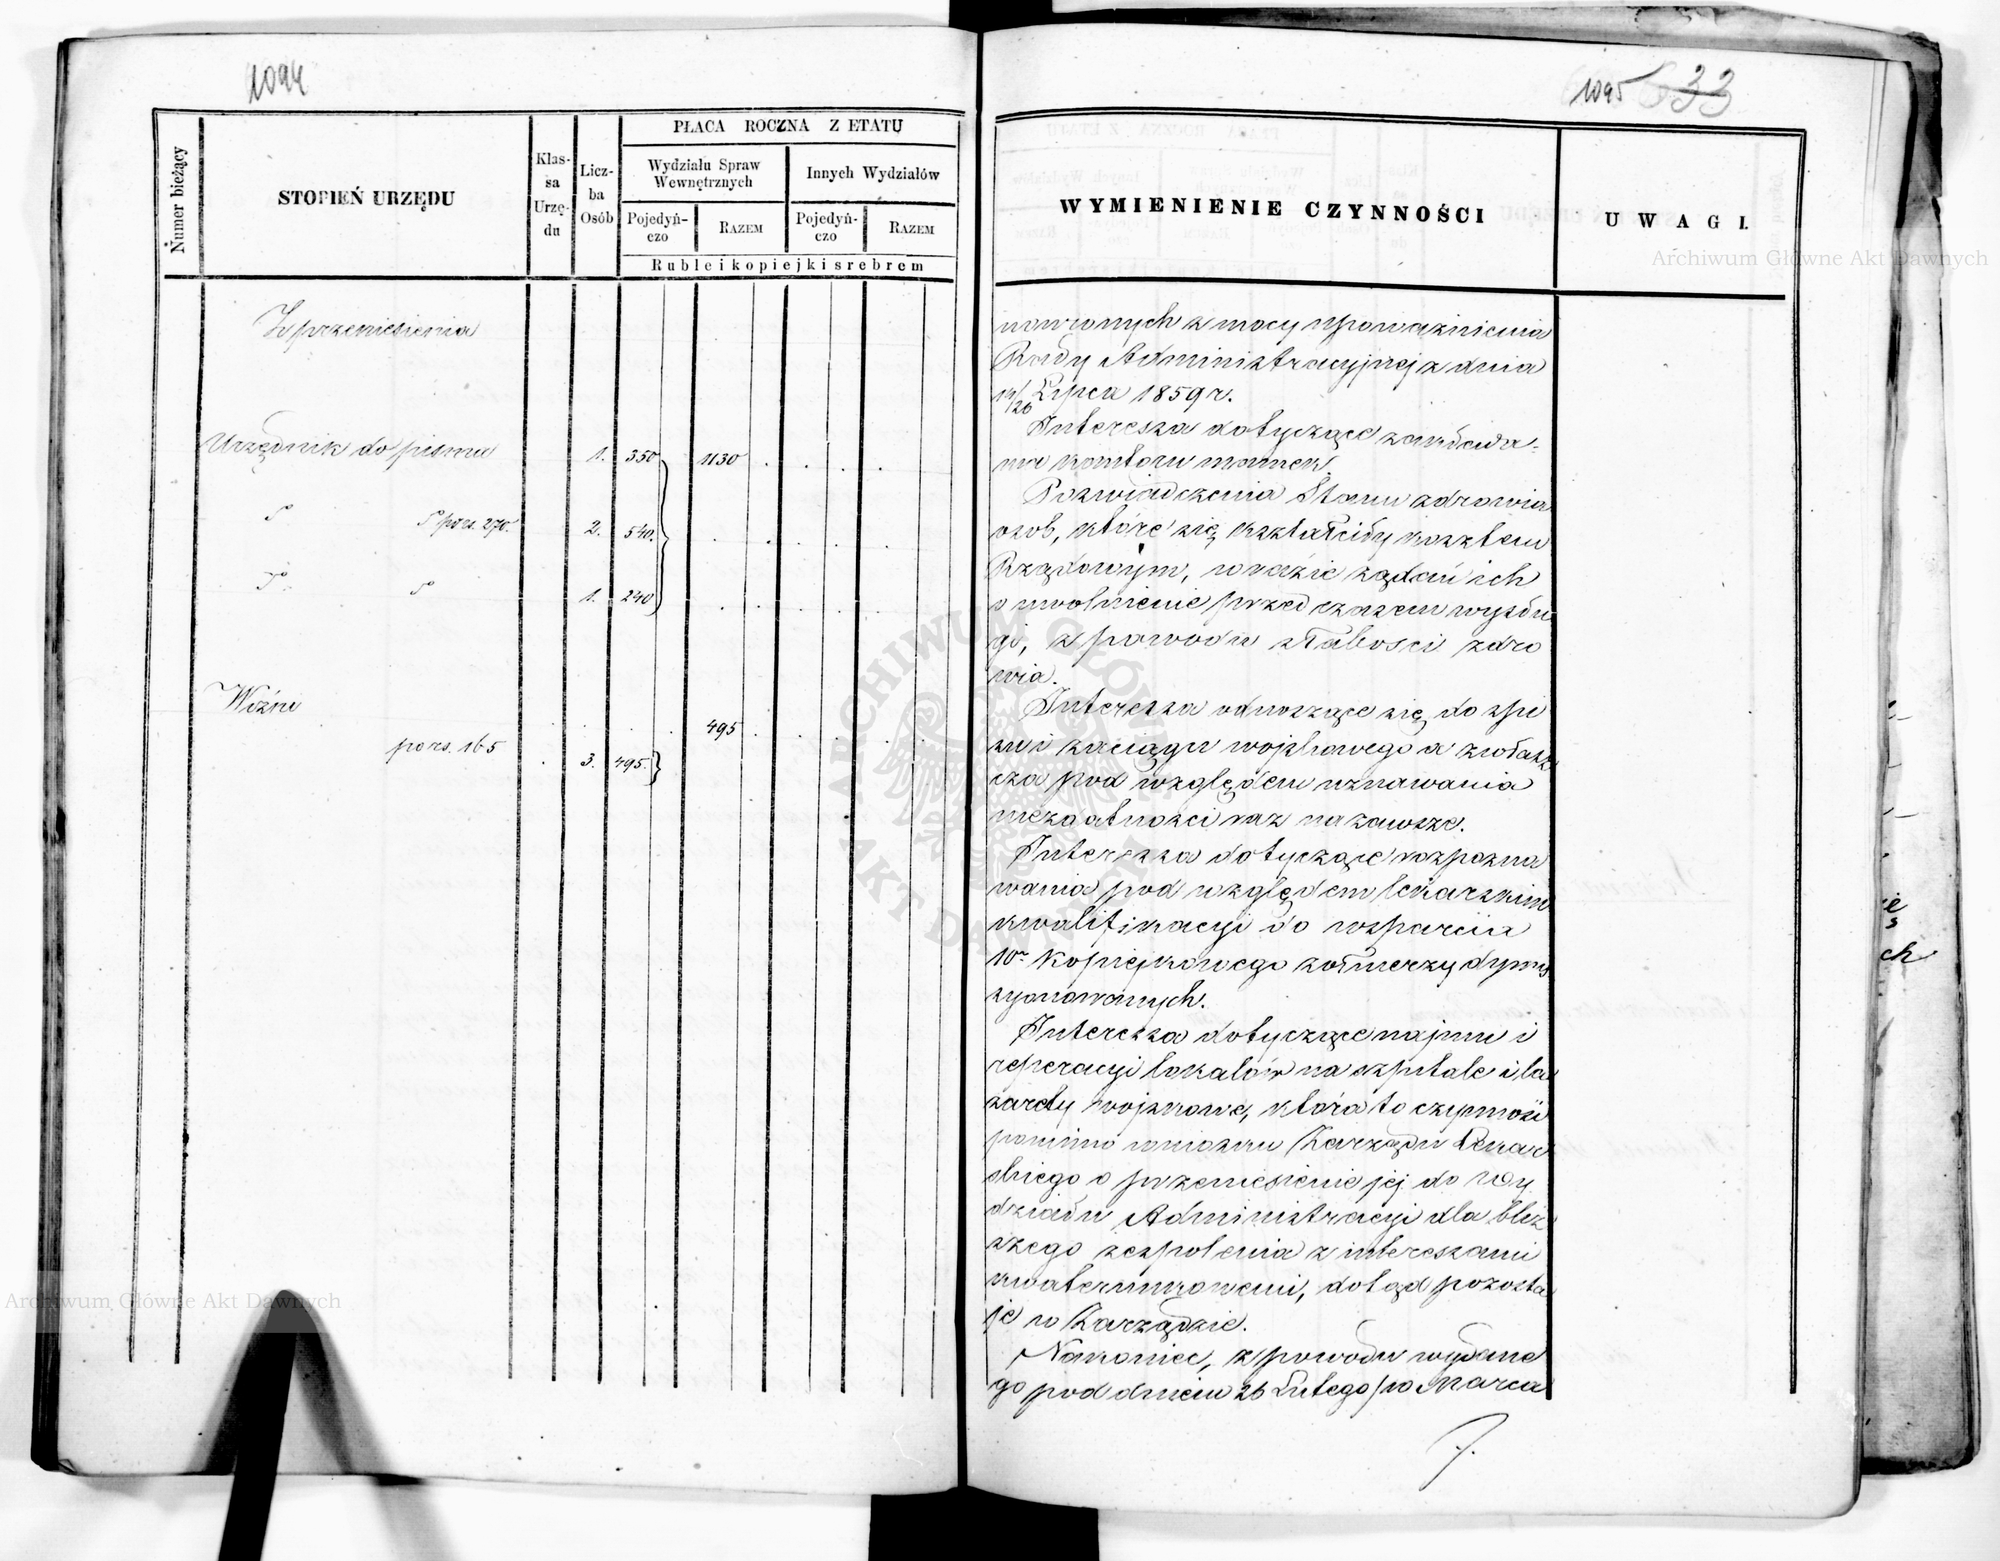 1094
Numer bieżący
STOPIEŃ URZĘDU
Klas-
sa
Urzę-
du
Licz-
ba
Osób
PŁACA ROCZNA Z ETATU
Wydziału Spraw
Wewnętrznych
Innych Wydziałów
Pojedyń-
czo
RAZEM
Pojedyń-
czo
RAZEM
Ruble i kopiejki srebrem
Z przeniesienia
Urzędnik do pisma 1. 350 1130
po rs. 270. 2. 540.
1. 240
Woźni 495
po rs. 165 3. 495.
1095 633
WYMIENIENIE CZYNNOŚCI
UWAGI.
nowionych z mocy upoważnienia
Rady Administracyjnej z dnia
14/26 Lipca 1859 r.
Interessa dotyczące zawiada-
nia kantoru mamek.
Poświadczenia Stanu zdrowia
osób, które się kształciły kosztem
Rządowym, w razie żądań ich
o uwolnienie przed czasem wysłu
gi, z powodu słabości zdro
wia.
Interessa odnoszące się do spi
su i zaciągu wojskowego a zwłasz
cza pod względem uznawania
niezdatności raz na zawsze.
Interessa dotyczące rozpozna
wania pod względem lekarskim
kwalifikacyi do wsparcia
10º Kopiejkowego żołnierzy dymis
syonowanych.
Interessa dotyczące najmu i
reperacyi lokalów na szpitale i la
zarety wojskowe, która to czynność
pomimo wniosku Zarządu Lekar
skiego o przeniesienie jej do Wy
działu Administracyi dla bliż
szego zespolenia z interessami
kwaterunkowemi, dotąd pozosta
je w Zarządzie.
Nakoniec, z powodu wydane
go pod dniem 26 Lutego/10 Marca
Archiwum Główne Akt Dawnych
Archiwum Główne Akt Dawnych
ARCHIWUM GŁÓWNE AKT DAWNYCH